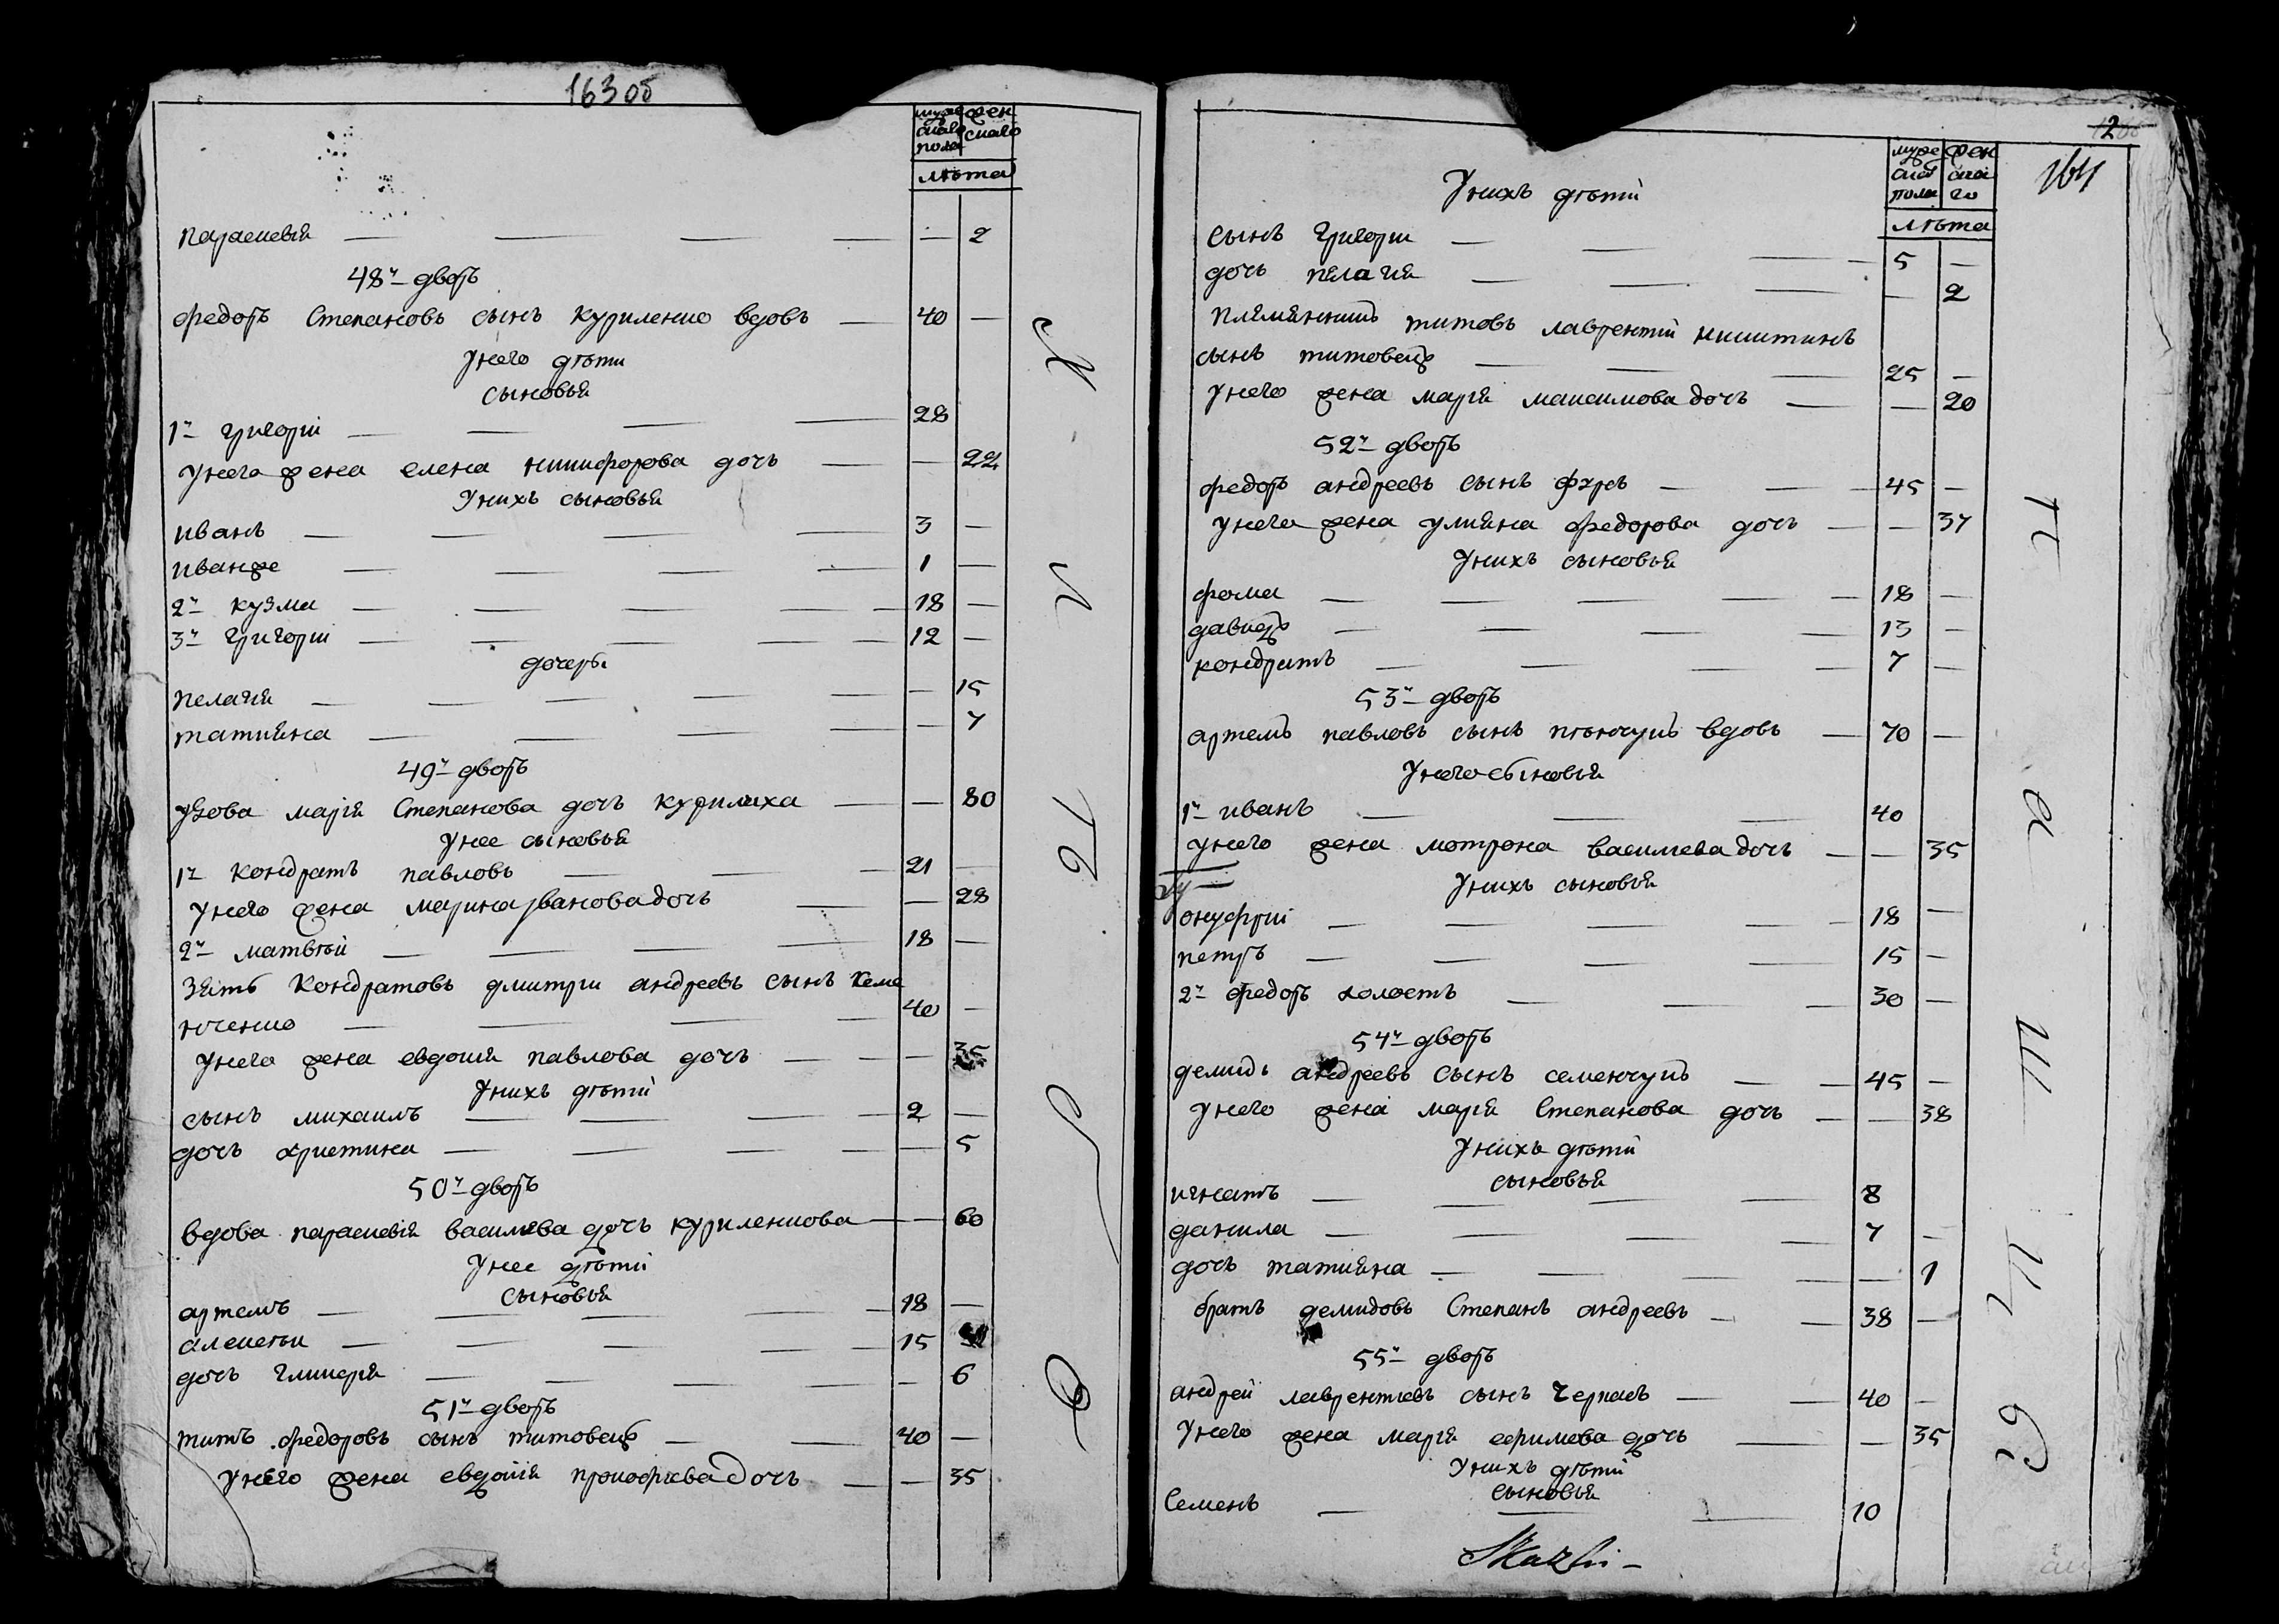 163об
муже ского пола
жен ского
лѣта
параскевія — 2
48й дворъ
федоръ Степановъ сынъ куриленко вдовъ 40 —
Унего дѣти
сыновья
1й григорій 28
Унего жена елена никифорова дочь — 22
Унихъ сыновья
иванъ 3 —
иванже 1 —
2й кузма 18 —
3й григорій 12 —
дочери
пелагія — 15
татияна — 7
49й дворъ
вдова марія Степанова дочь курилиха — 80
Унее сыновья
1й кондратъ павловъ 21 —
Унего жена марина иванова дочь — 28
2й матвѣй 18 —
Зять Кондратовъ дмитри андреевъ сынъ Кеме
нченко 40 —
Унего жена евдокия павлова дочь — 35
Унихъ дѣтй
сынъ михаилъ 2 —
дочь христина — 5
50й дворъ
вдова параскевія василева дочь куриленкова — 60
Унее дѣтй
сыновья
артемъ 18 —
алексѣи 15
дочь гликерія — 6
51й дворъ
титъ федоровъ сынъ титовецъ 40 —
Унего жена евдокія прокофіева дочь — 35
2
164
муже ского пола
жен скаго
лѣта
Унихъ дѣтй
сынъ григори 5 —
дочь пелагия — 2
племянникъ титовъ лаврентий никитинъ
сынъ титовецъ 25 —
Унего жена марія максимова дочь — 20
52й дворъ
федоръ андреевъ сынъ фурсъ 45 —
Унего жена улияна федорова дочь — 37
Унихъ сыновья
фома 18 —
давидъ 13 —
кондратъ 7 —
53й дворъ
артемъ павловъ сынъ пѣнчукъ вдовъ 70 —
Унего сыновья
1й иванъ 40
Унего жена мотрона василиева дочь — 35
Унихъ сыновья
онуфрій 18 —
петръ 15 —
2й федоръ холостъ 30 —
54й дворъ
демидъ андреевъ сынъ семенчукъ 45 —
Унего жена марія Степанова дочь — 38
Унихъ дѣтй
сыновья
игнатъ 8
данила 7 —
дочь татияна — 1
братъ демидовъ Степанъ андреевъ 38 —
55й дворъ
андрей лаврентіевъ сынъ Черкасъ 40 —
Унего жена марія ефимова дочь — 35
Унихъ дѣтй
сыновья
Семенъ 10